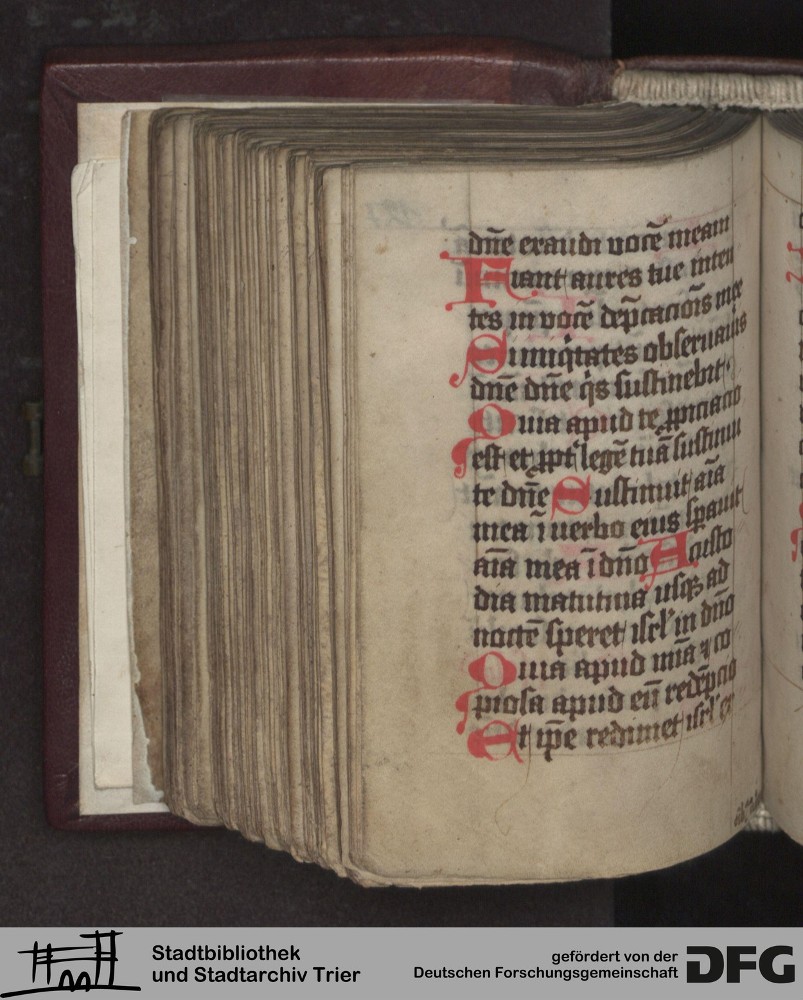 dn̄e exaudi vocē meam
Fiant aures tue inten
tes in vocē dep̄cacōīs mee
Si iniq̇tates observaũis
dn̄e dn̄e q̇s sustinebit·
Quia apud te ꝓpiciacio
est et ꝓpt̉ legē tuā sustinui
te dn̄e Sustinuit aīa
mea ī uerbo eius sp̄auit
aīa mea ī dn̄o A custo
dia matutina usqꝫ ad
noctē speret isrl̉ in dn̄o
Quia apud mīa ⁊ co
piosa apud eū redēpcio
Et ip̄e redimet isrl̉ ex
Stadtbibliothek
und Stadtarchiv Trier
gefördert von der
Deutschen Forschungsgemeinschaft
DFG